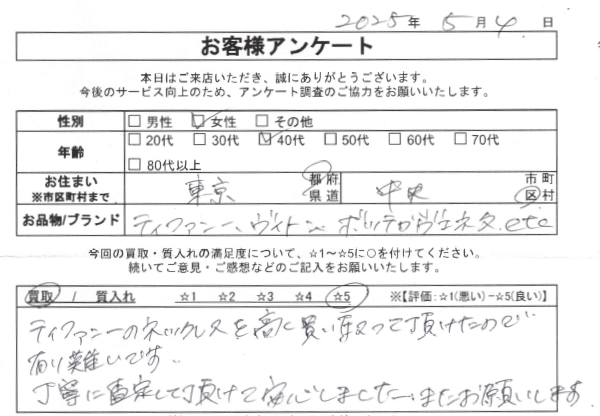 2025年 5月 4日
お客様アンケート
本日はご来店いただき、誠にありがとうございます。
今後のサービス向上のため、アンケート調査のご協力をお願いいたします。
性別 □男性 ☑女性 □その他
年齢 □20代 □30代 ☑40代 □50代 □60代 □70代
□80代以上
お住まい ※市区町村まで 東京 都府県道 中央 市町区村
お品物/ブランド ティファニー、ヴィトン、ボッテガヴェネタ etc
今回の買取・質入れの満足度について、☆1～☆5に○を付けてください。
続いてご意見・ご感想などのご記入をお願いいたします。
買取 / 質入れ ☆1 ☆2 ☆3 ☆4 ☆5 ※【評価:☆1(悪い)－☆5(良い)】
ティファニーのネックレスを高く買い取って頂けたので
有り難いです。
丁寧に査定して頂けて安心しました。またお願いします